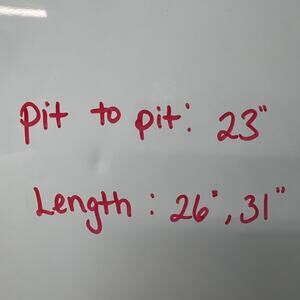 pit to pit: 23"
Length : 26", 31"